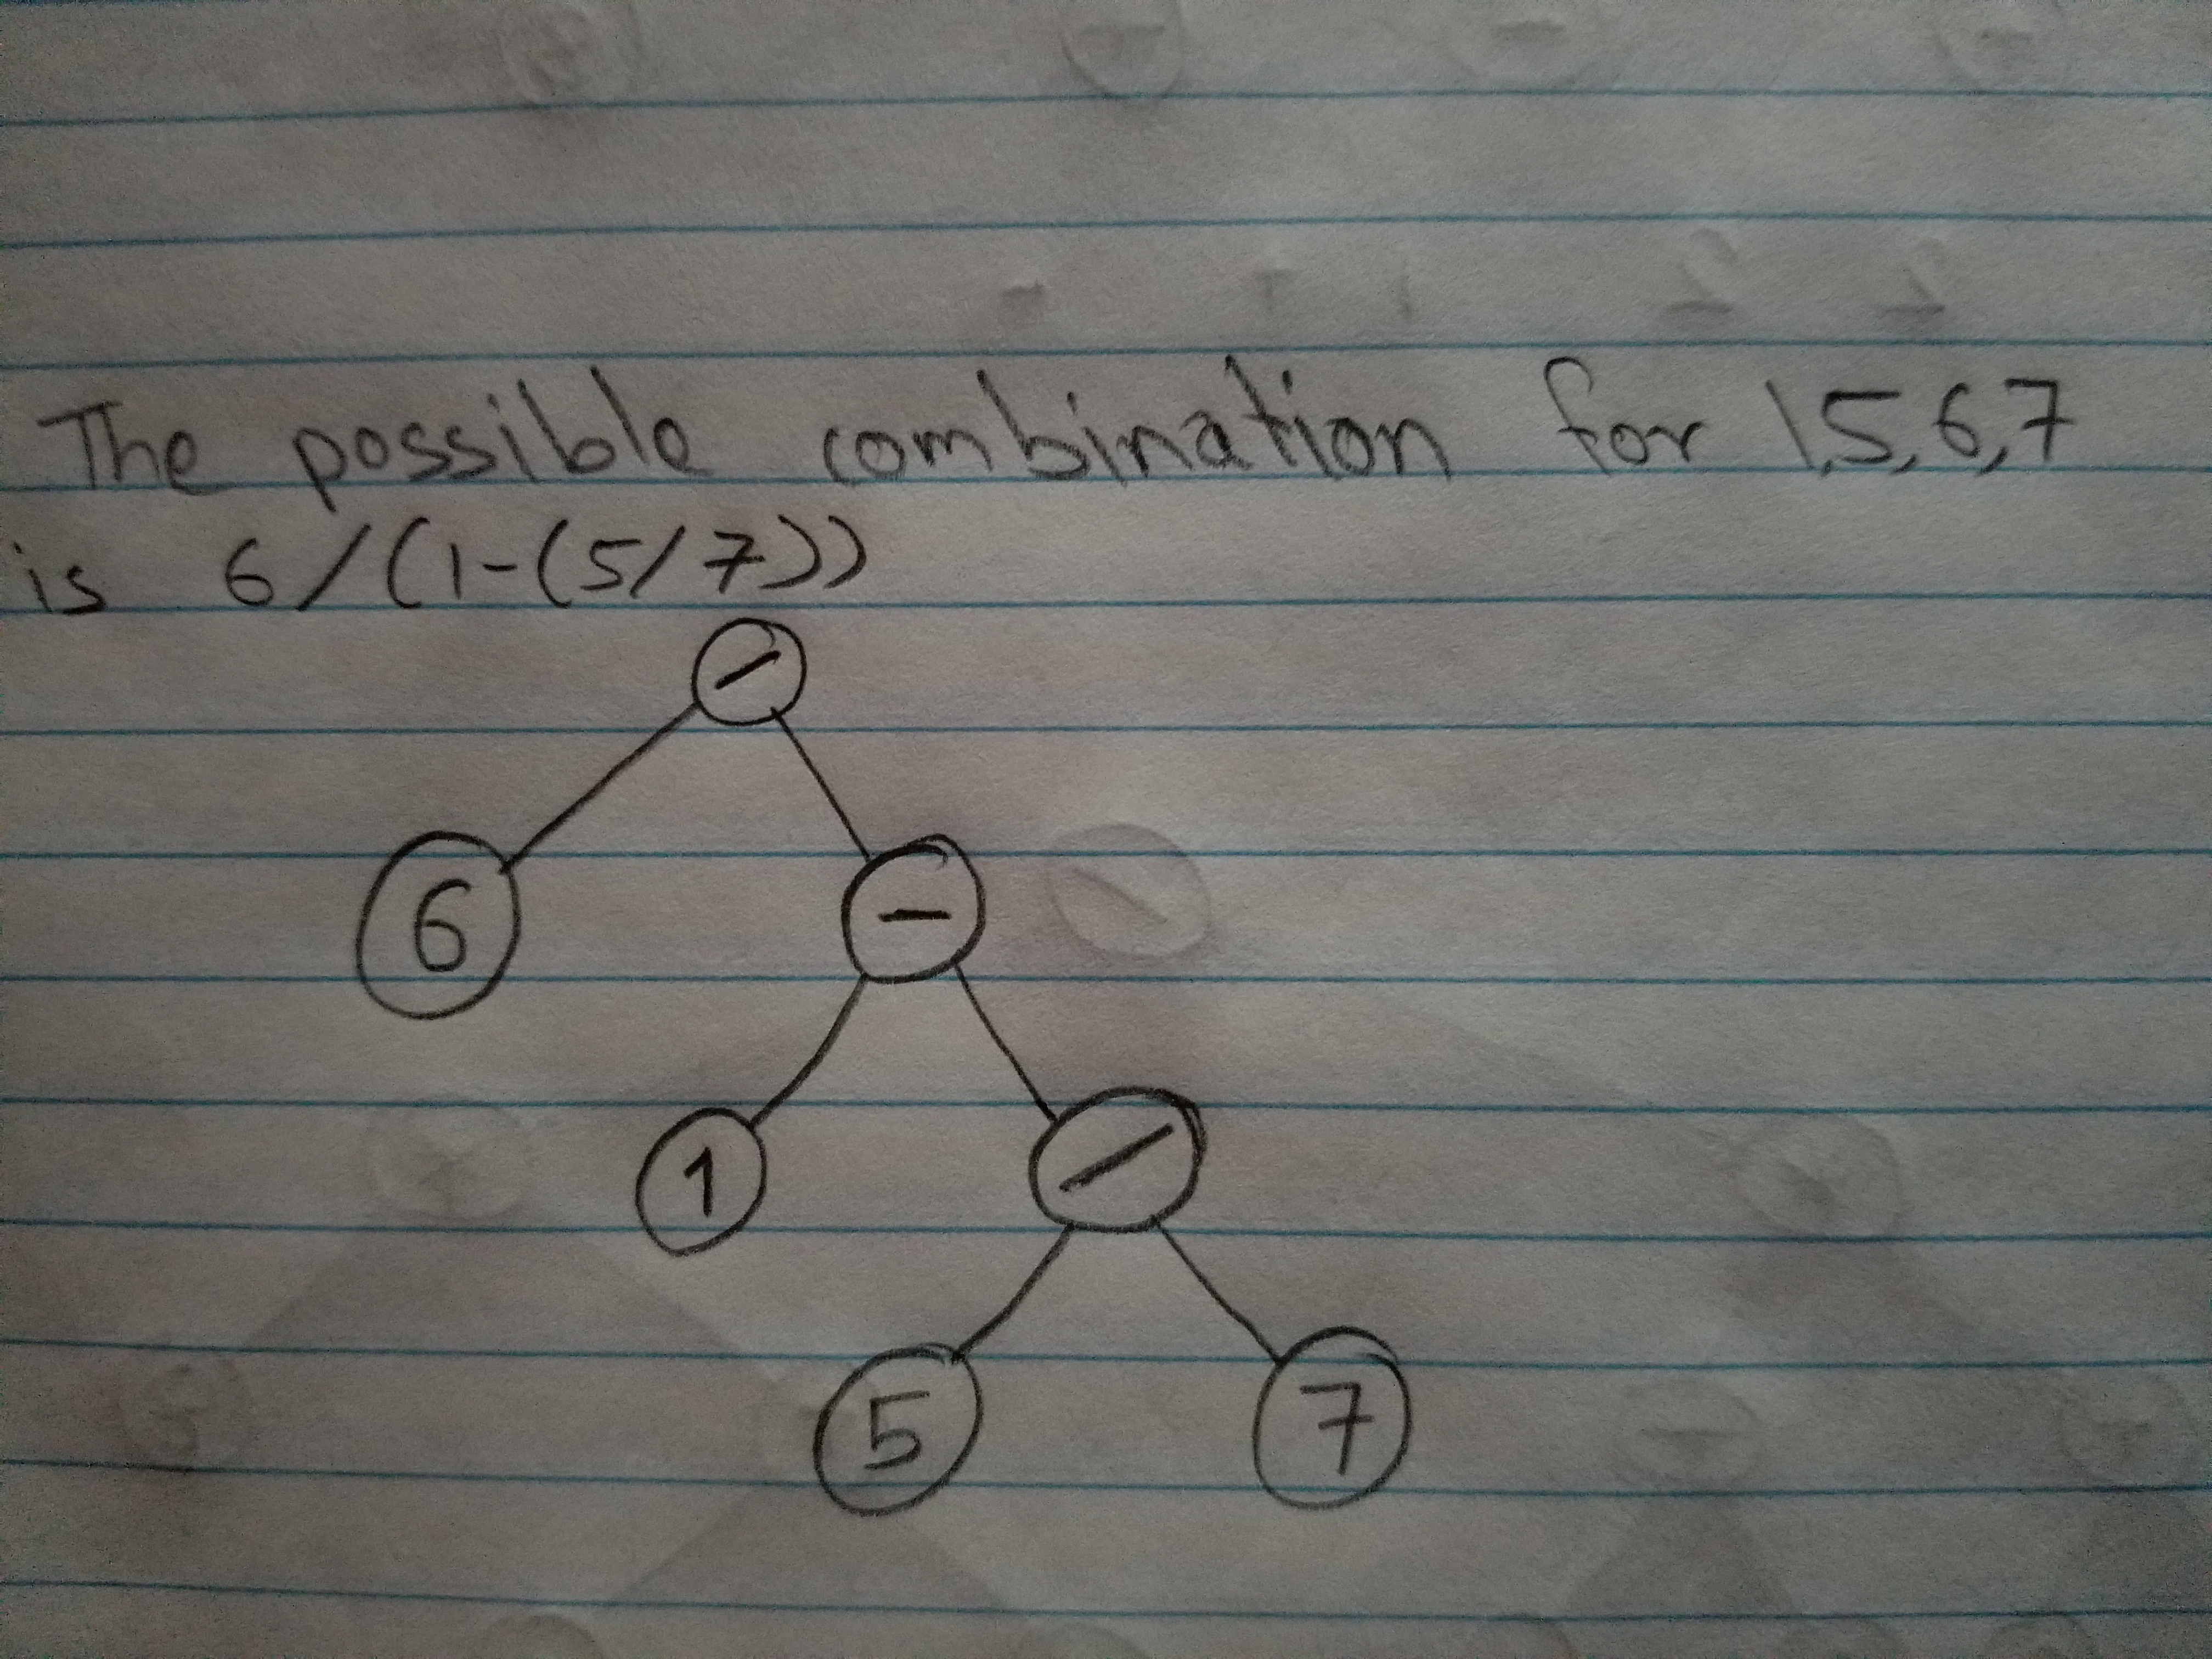 The possible combination for 1,5,6,7
is 6/(1-(5/7))
/
6 -
1 /
5 7